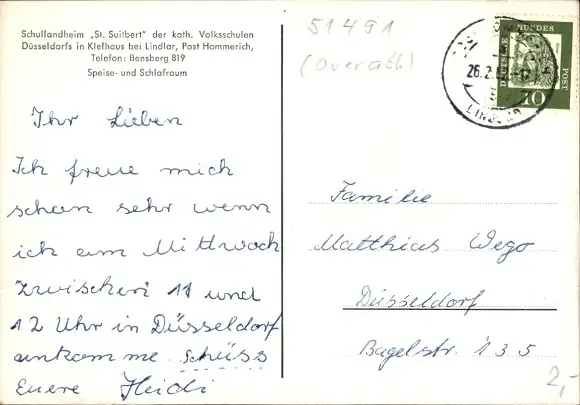 Schullandheim „St. Suitbert" der kath. Volksschulen
Düsseldorfs in Klefhaus bei Lindlar, Post Hommerich,
Telefon: Bensberg 819
Speise- und Schlafraum
51491
(Overath)
26.2.
LINDLAR
DEUTSCHE BUNDESPOST
10
Ihr Lieben
Ich freue mich
schon sehr wenn
ich am Mittwoch
zwischen 11 und
12 Uhr in Düsseldorf
ankomme. Schüss
Euere Heidi
Familie
Matthias Wego
Düsseldorf
Bagelstr. 135
2,-